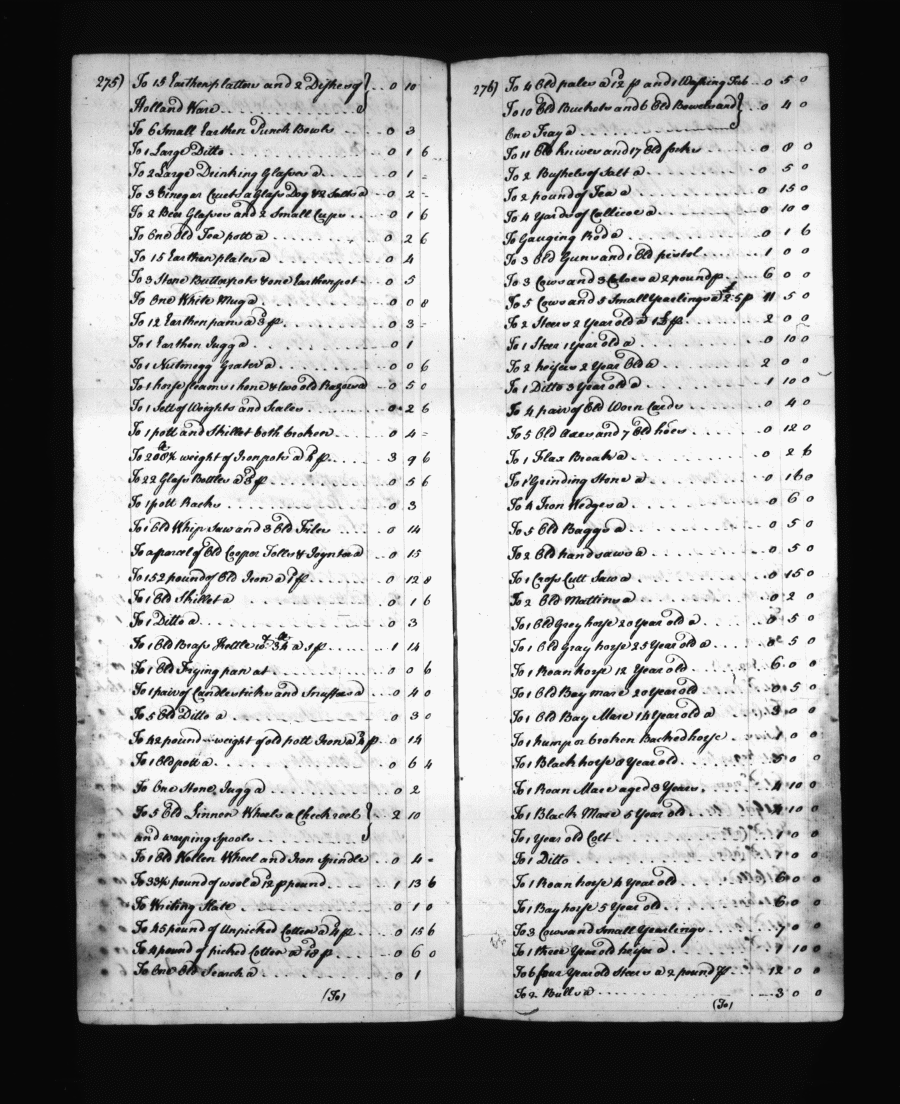 275) To 15 Earthen platters and 2 Dishes of } 0 10
Holland Ware
To 6 Small Earthen Punch Bowls 0 3
To 1 Large Ditto 0 1 6
To 2 Large Drinking Glasses a 0 1 -
To 3 Vinegar Cruets a Glass Dog & 2 Salts a 0 2 -
To 2 Beer Glasses and 2 Small Cupps 0 1 6
To One old Tea pott a 0 2 6
To 15 Earthen plates a 0 4
To 3 Stone Butterpots & one Earthenpot 0 5
To One White Mug a 0 0 8
To 12 Earthen pans a 3 p 0 3 -
To 1 Earthen Jugg a 0 1
To 1 Nutmegg Grater a 0 0 6
To 1 horse fleam 1 hone & two old Razors a 0 5 0
To 1 Sett of Weights and Scales 0 2 6
To 1 pott and Skillet both broken 0 4 -
To weight of Iron pots a p 3 9 6
To 22 Glass Bottles a 3 p 0 5 6
To 1 pott Racks 0 3
To 1 Old Whip Saw and 3 Old Files 0 14
To a parcel of Old Cooper Tolls & Joynter a 0 15
To 152 pound of Old Iron a 1 p 0 12 8
To 1 Old Skillet a 0 1 6
To 1 Ditto a 0 3
To 1 Old Brass Kettle wt. 34 a 1 p 1 14
To 1 Old Frying pan at 0 0 6
To 1 pair of Candlesticks and Snuffers a 0 4 0
To 5 Old Ditto a 0 3 0
To 42 pound weight of old pott Iron a 4 p 0 14
To 1 Old pott a 0 6 4
To One Stone Jugg a 0 2
To 5 Old Linnen Wheels a Check reel } 2 10
and warping Spools
To 1 Old Wollen Wheel and Iron Spindle 0 4 -
To 33½ pound of wool a 12 p pound 1 13 6
To Writing Slate 0 1 0
To 45 pound of Unpicked Cotton a 4 p 0 15 6
To 4 pound of picked Cotton a 18 p 0 6 0
To One Old Search a 0 1
(To)
276) To 4 Old pales a 12 p and 1 Washing Tub 0 5 0
To 10 Old Buckets and 6 Old Bowels and } 0 4 0
One Tray a
To 11 Old knives and 17 Old forks 0 8 0
To 2 Bushels of Salt a 0 5 0
To 2 pound of Tea a 0 15 0
To 4 Yards of Callicoe a 0 10 0
To Gauging Rod a 0 1 6
To 3 Old Guns and 1 Old pistol 1 0 0
To 3 Cows and 3 Calves a 2 pound p 6 0 0
To 5 Cows and 5 Small Yearlings a 2:5 p 11 5 0
To 2 Steers 2 Year old a 1 £ p 2 0 0
To 1 Steer 1 year old a 0 10 0
To 2 heifers 2 Year Old a 2 0 0
To 1 Ditto 3 Year old a 1 10 0
To 4 pair of Old Worn Cards 0 4 0
To 5 Old Axes and 7 Old hoes 0 12 0
To 1 Flax Break a 0 2 6
To 1 Grinding Stone a 0 16 0
To 4 Iron Wedges a 0 6 0
To 5 Old Baggs a 0 5 0
To 2 Old hand saws a 0 5 0
To 1 Cross Cutt Saw a 0 15 0
To 2 Old Mattins a 0 2 0
To 1 Old Grey horse 20 Year old a 0 5 0
To 1 Old Gray horse 25 Year old a 0 5 0
To 1 Roan horse 12 Year old 6 0 0
To 1 Old Bay mare 20 Year old 0 5 0
To 1 Old Bay Mare 14 Year old a 3 0 0
To 1 hump or broken Backed horse 1 0 0
To 1 Black horse 8 Year old 5 0 0
To 1 Roan Mare aged 3 Years 4 10 0
To 1 Black Mare 5 Year old 4 10 0
To 1 Year old Colt 1 0 0
To 1 Ditto 7 0 0
To 1 Roan horse 4 Year old 6 0 0
To 1 Bay horse 5 Year old 6 0 0
To 3 Cows and Small Yearlings 7 0 0
To 1 three Year old heifer a 1 10 0
To 6 four Year old Steers a 2 pound p 12 0 0
To 2 Bulls a 3 0 0
(To)